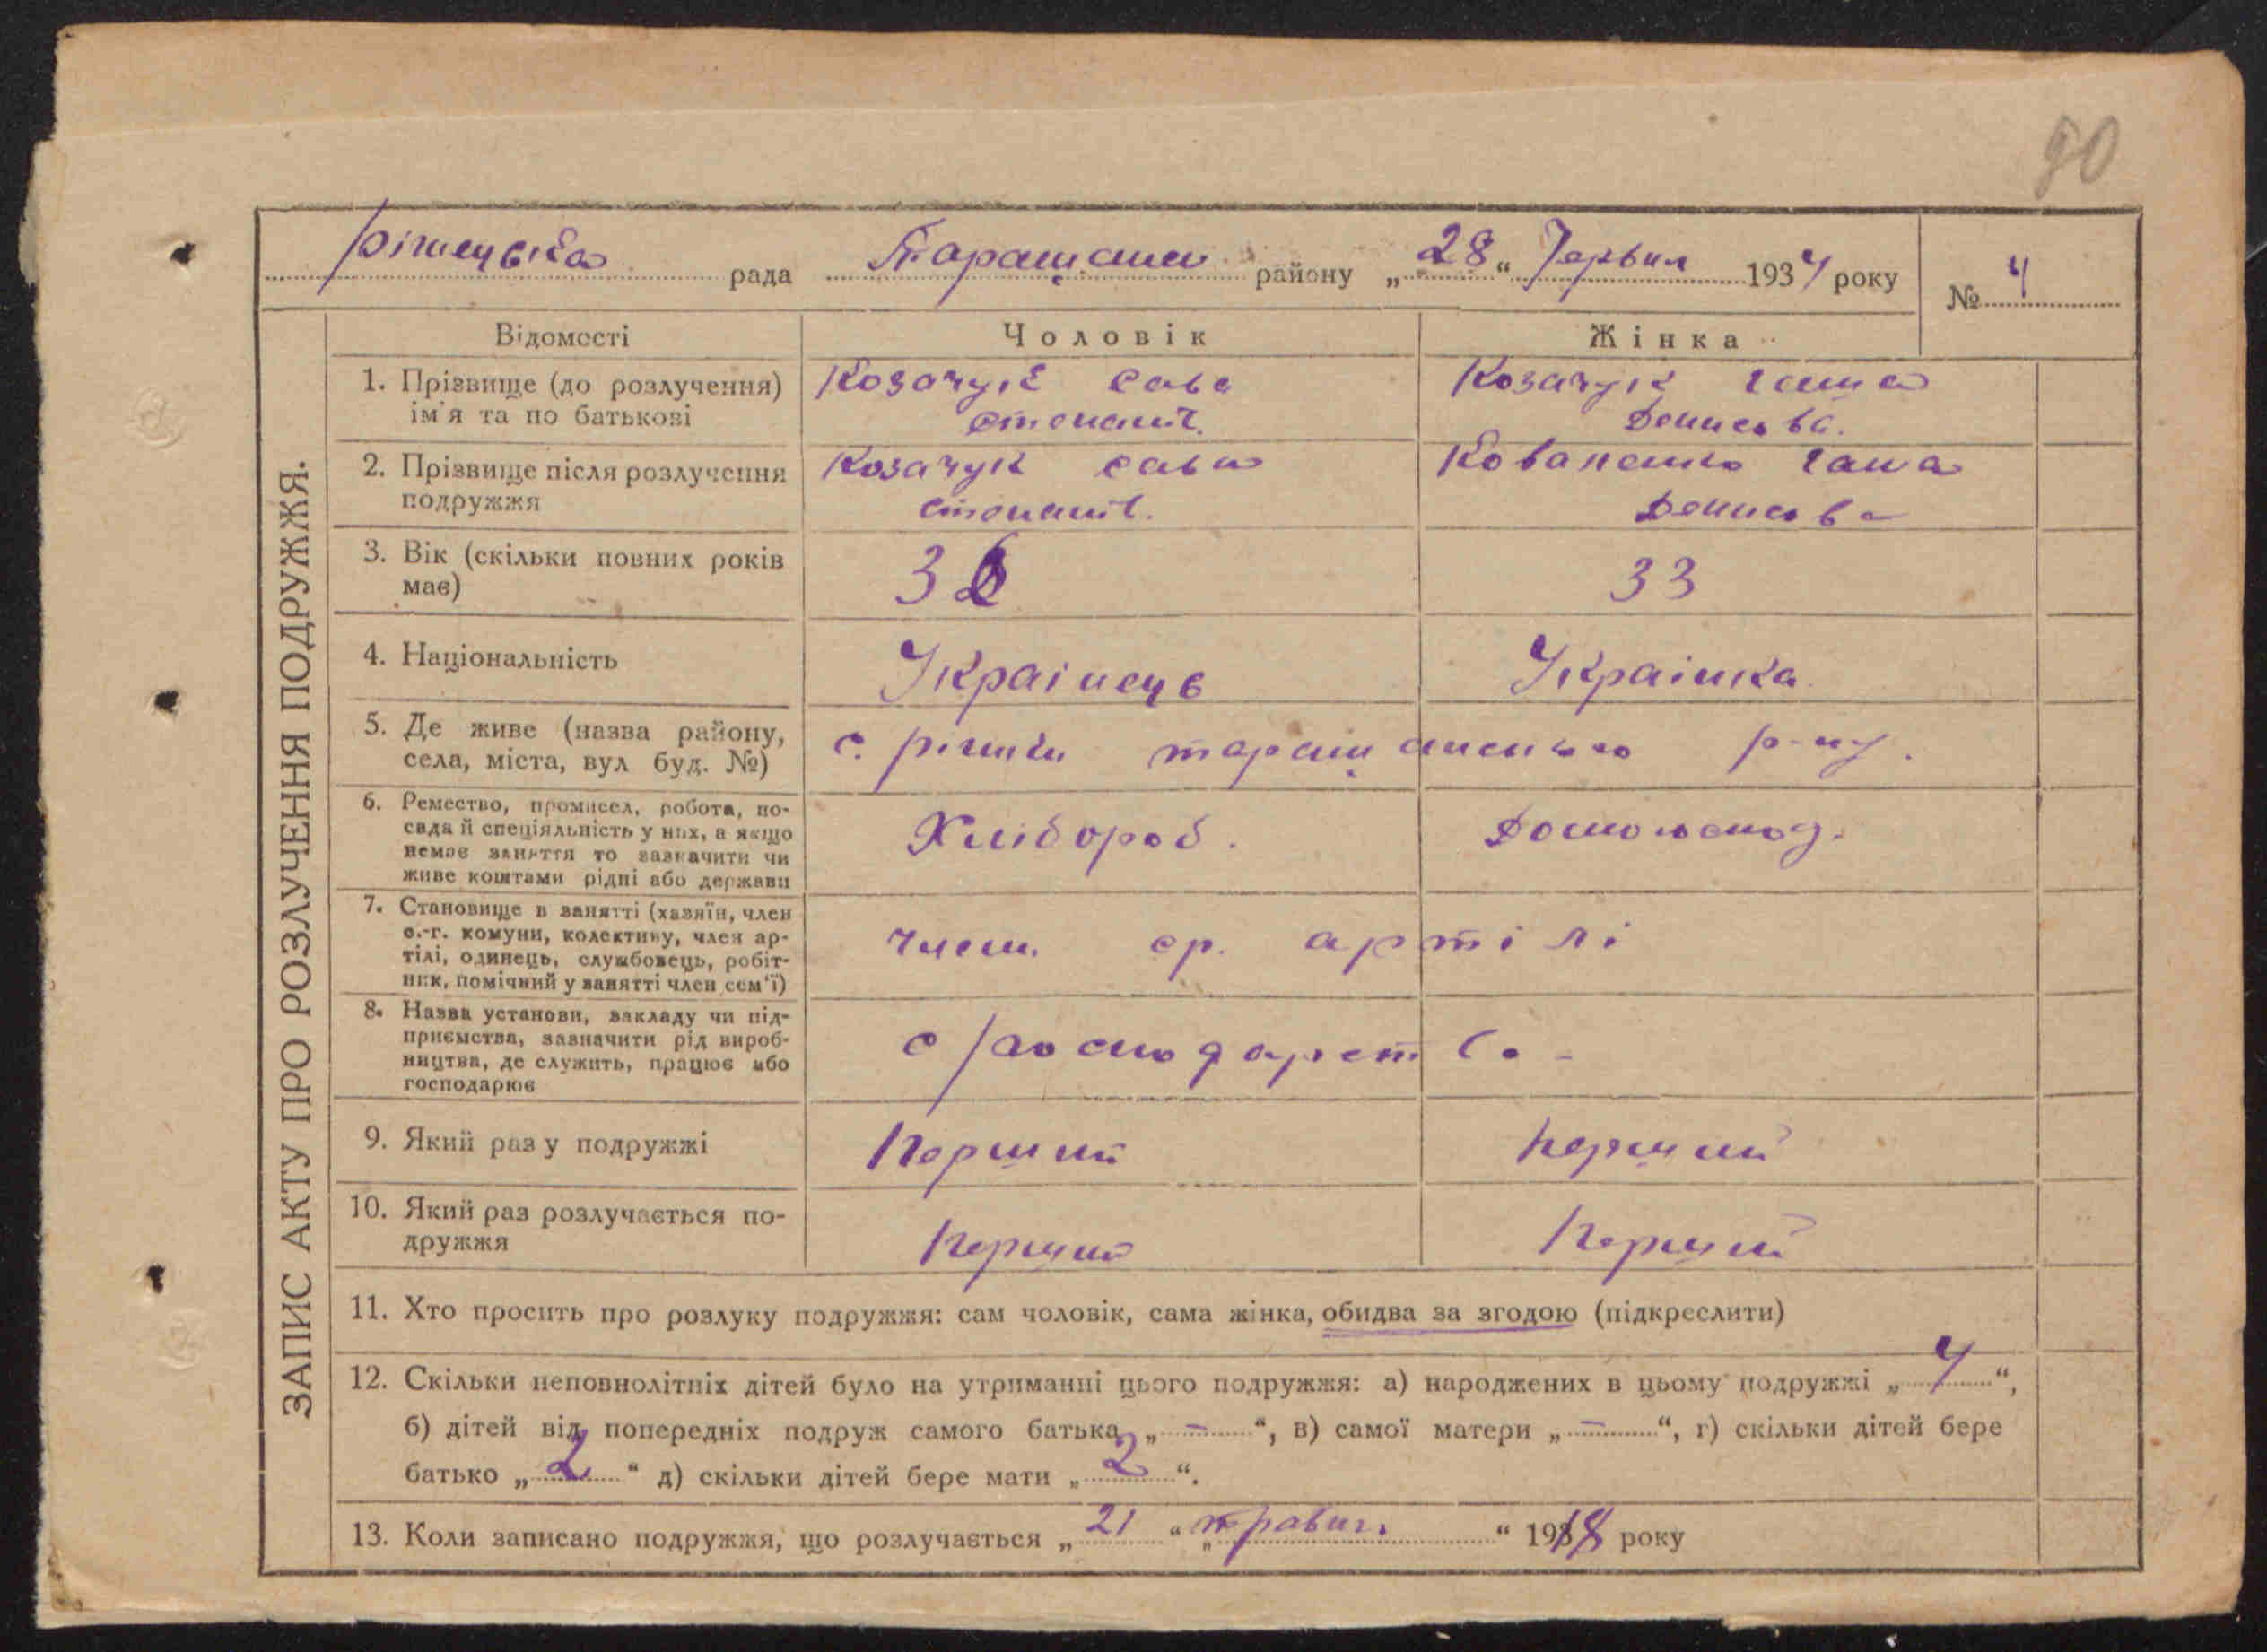 90
Рішецька рада Таращан. району „28“ Червня 1934 року № 4
ЗАПИС АКТУ ПРО РОЗЛУЧЕННЯ ПОДРУЖЖЯ.
Відомости Чоловік Жінка
1. Прізвище (до розлучення) Козачук Сава Козачук Ганна
ім'я та по батькові Степанів. Денисова.
2. Прізвище після розлучення Козачук Сава Коваленко Ганна
подружжя Степанів. Денисова
3. Вік (скільки повних років 36 33
має)
4. Національність Украінець Украінка
5. Де живе (назва району, с. рішки таращанського р-ну.
села, міста, вул буд. №)
6. Ремество, промисел, робота, по-
сада й спеціяльність у них, а якщо Хлібороб. Домогоспод.
немає заняття то зазначити чи
живе коштами рідні або держави
7. Становище в занятті (хазяїн, член
с.-г. комуни, колективу, член ар- член. ср. артілі
тілі, одинець, службовець, робіт-
ник, помічний у занятті член сем'ї)
8. Назва установи, закладу чи під-
приємства, зазначити рід вироб- с/господарство
ництва, де служить, працює або
господарює
9. Який раз у подружжі Перший Перший
10. Який раз розлучається по- Перший Перший
дружжя
11. Хто просить про розлуку подружжя: сам чоловік, сама жінка, обидва за згодою (підкреслити)
12. Скільки неповнолітніх дітей було на утриманні цього подружжя: а) народжених в цьому подружжі „4“,
б) дітей від попередніх подруж самого батька „–“, в) самої матери „–“, г) скільки дітей бере
батько „2“ д) скільки дітей бере мати „2“.
13. Коли записано подружжя, що розлучається „21“ „травня“ 1918 року